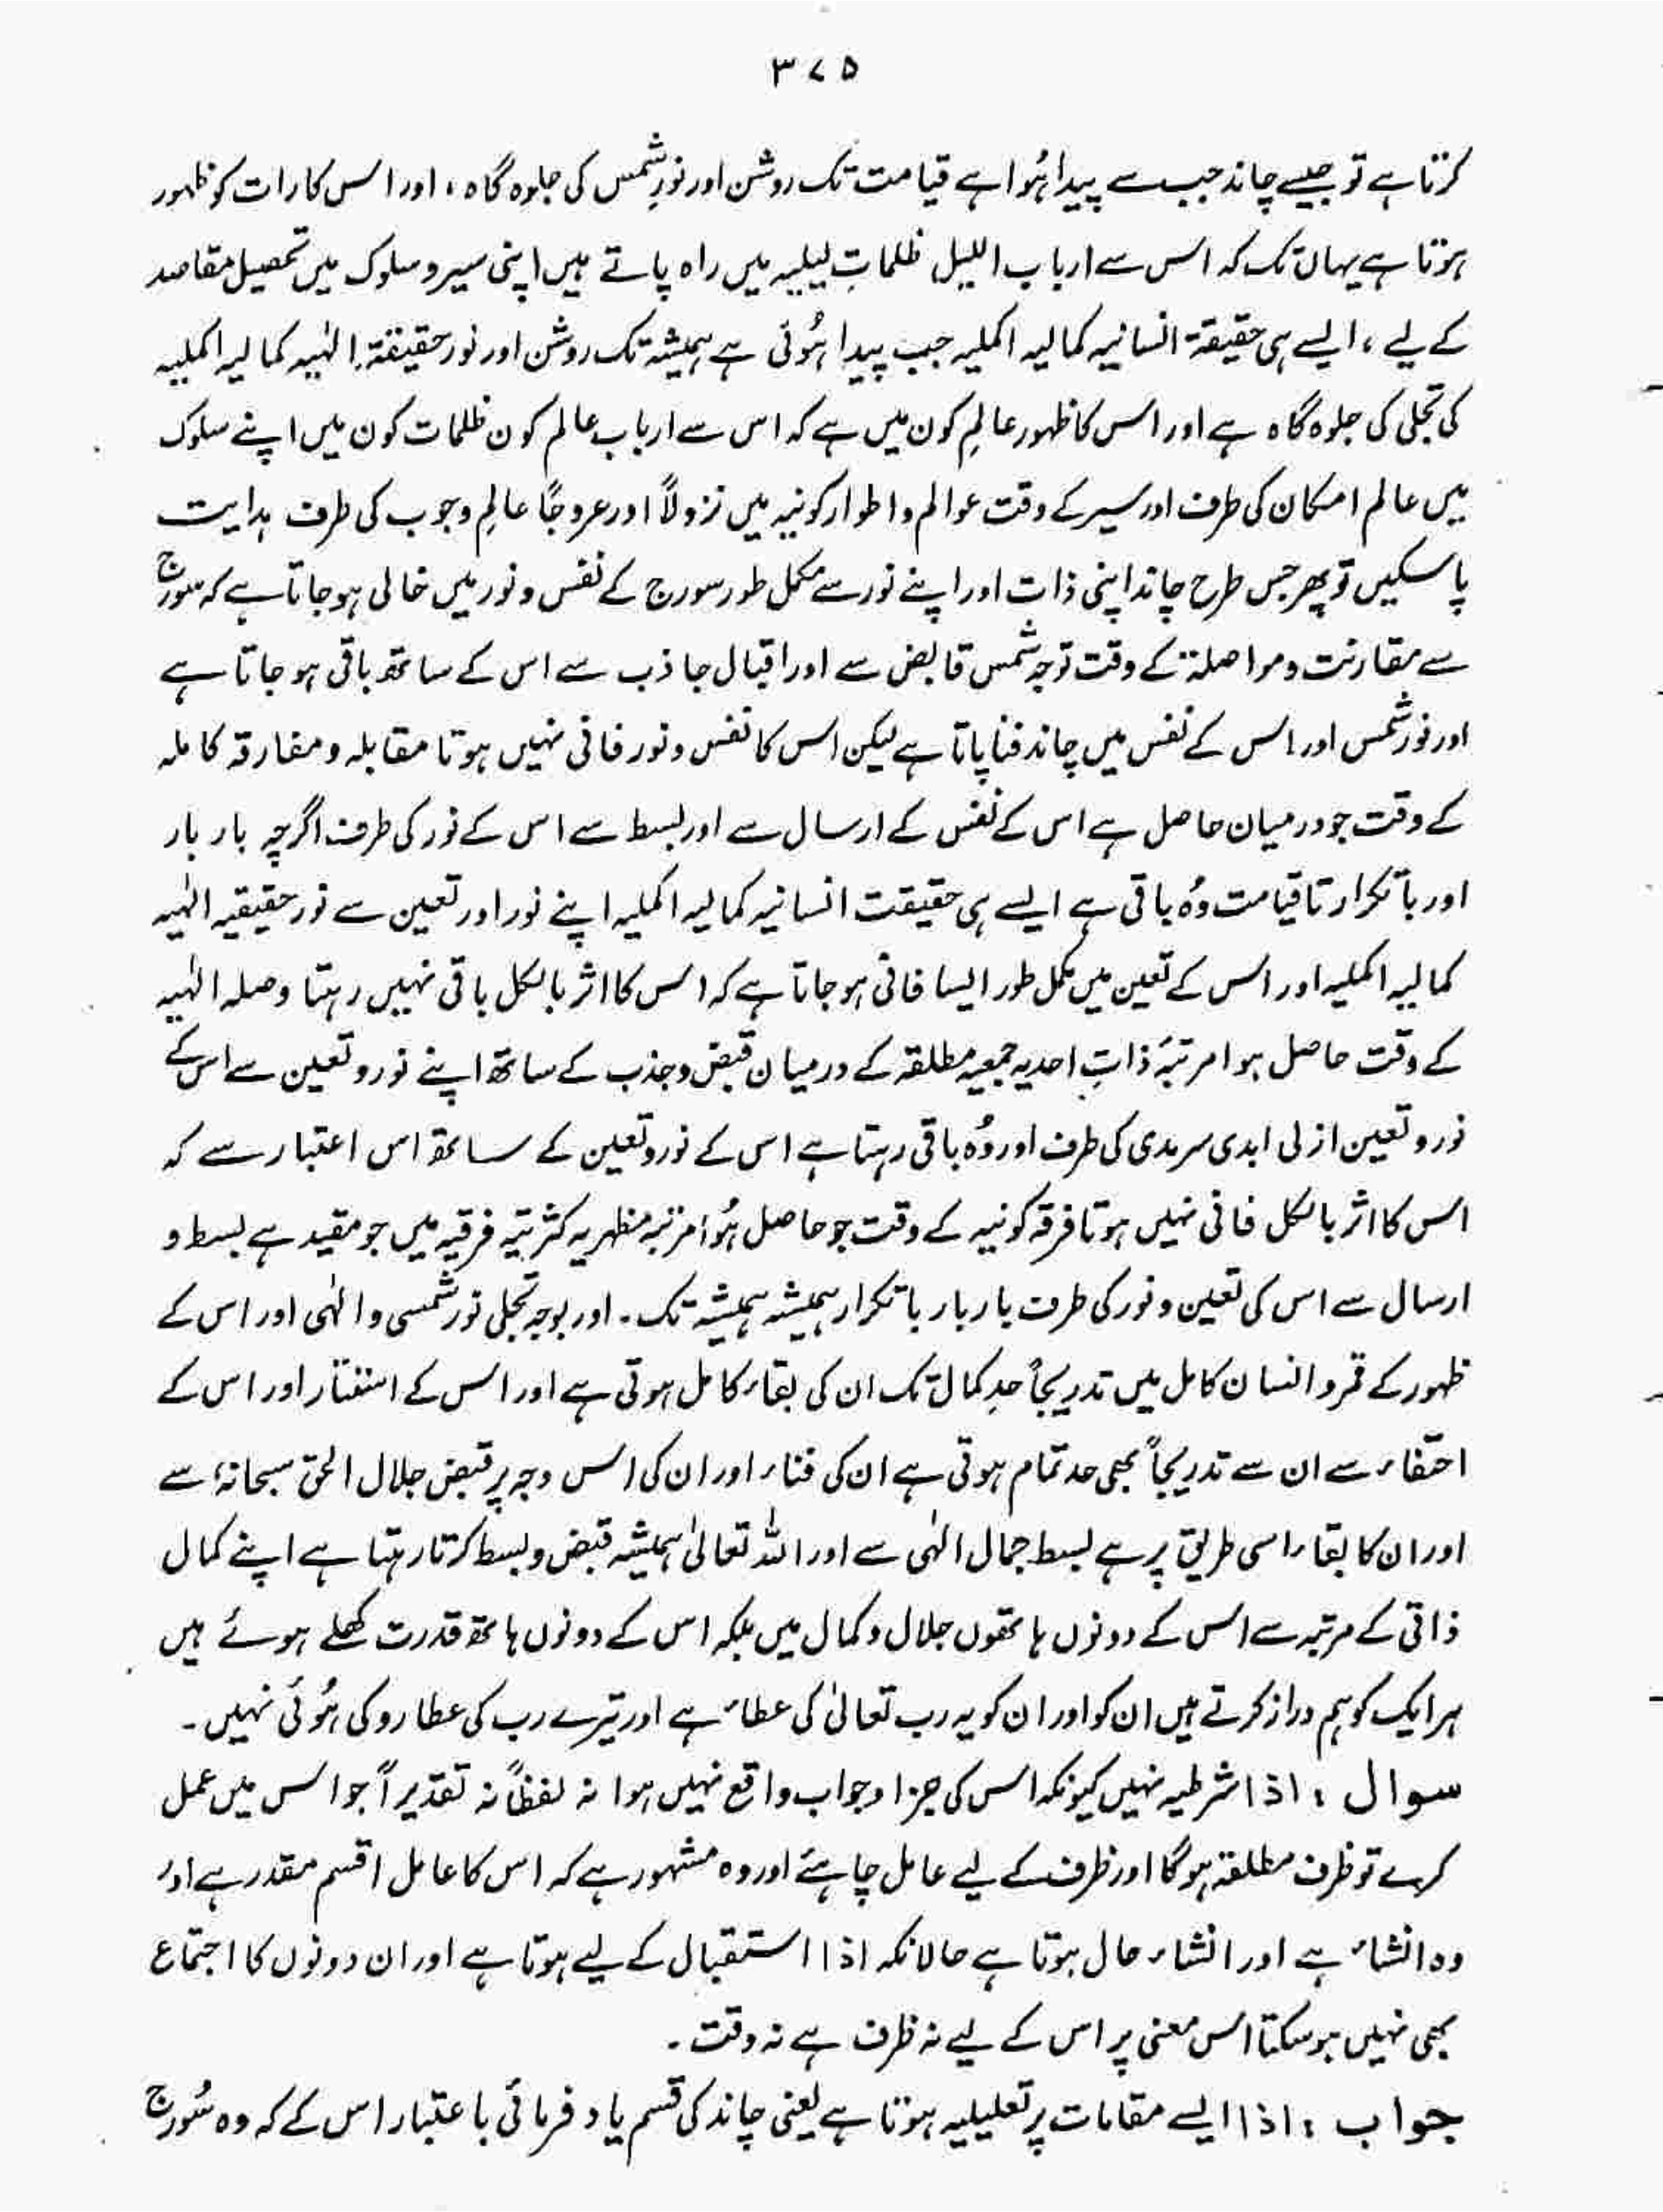 ۳۷۵
کرتا ہے تو جیسے چاند جب سے پیدا ہُوا ہے قیامت تک روشن اور نورِ شمس کی جلوہ گاہ ، اور اس کا رات کو ظہور
ہوتا ہے یہاں تک کہ اس سے ارباب اللیل ظلماتِ لیلیہ میں راہ پاتے ہیں اپنی سیر و سلوک میں تحصیل مقاصد
کے لیے ، ایسے ہی حقیقۃ انسانیہ کمالیہ اکملیہ جب پیدا ہُوئی ہے ہمیشہ تک روشن اور نور حقیقۃ الٰہیہ کمالیہ اکملیہ
کی تجلی کی جلوہ گاہ ہے اور اس کا ظہور عالمِ کون میں ہے کہ اس سے ارباب عالم کون ظلمات کون میں اپنے سلوک
میں عالم امکان کی طرف اور سیر کے وقت عوالم و اطوار کونیہ میں نزولاً اور عروجًا عالمِ وجوب کی طرف ہدایت
پا سکیں تو پھر جس طرح چاند اپنی ذات اور اپنے نور سے مکمل طور سورج کے نفس و نور میں خالی ہو جاتا ہے کہ سورج
سے مقارنت و مواصلۃ کے وقت توجہ شمس قابض سے اور اقبال جاذب سے اس کے ساتھ باقی ہو جاتا ہے
اور نور شمس اور اس کے نفس میں چاند فنا پاتا ہے لیکن اس کا نفس و نور فانی نہیں ہوتا مقابلہ و مفارقہ کاملہ
کے وقت جو درمیان حاصل ہے اس کے نفس کے ارسال سے اور بسط سے اس کے نور کی طرف اگرچہ بار بار
اور باتکرار تا قیامت وُہ باقی ہے ایسے ہی حقیقت انسانیہ کمالیہ اکملیہ اپنے نور اور تعین سے نور حقیقیہ الٰہیہ
کمالیہ اکملیہ اور اس کے تعین میں مکمل طور ایسا فانی ہو جاتا ہے کہ اس کا اثر بالکل باقی نہیں رہتا وصلہ الٰہیہ
کے وقت حاصل ہوا مرتبۂ ذاتِ احدیہ جمعیہ مطلقہ کے درمیان قبض و جذب کے ساتھ اپنے نور و تعین سے اس کے
نور و تعین ازلی ابدی سرمدی کی طرف اور وُہ باقی رہتا ہے اس کے نور و تعین کے ساتھ اس اعتبار سے کہ
اس کا اثر بالکل فانی نہیں ہوتا فرقہ کونیہ کے وقت جو حاصل ہُوا مرتبہ مظہریہ کثرتیہ فرقیہ میں جو مقید ہے بسط و
ارسال سے اس کی تعین و نور کی طرف بار بار باتکرار ہمیشہ ہمیشہ تک ۔ اور بوجہ تجلی نور شمسی و الٰہی اور اس کے
ظہور کے قمر و انسان کامل میں تدریجاً حدِ کمال تک ان کی بقاء کامل ہوتی ہے اور اس کے استتار اور اس کے
اختفاء سے ان سے تدریجاً بھی حد تمام ہوتی ہے ان کی فناء اور ان کی اس وجہ پر قبض جلال الحق سبحانہٗ سے
اور ان کا بقاء اسی طریق پر ہے بسط جمال الٰہی سے اور اللہ تعالیٰ ہمیشہ قبض و بسط کرتا رہتا ہے اپنے کمال
ذاتی کے مرتبہ سے اس کے دونوں ہاتھوں جلال و کمال میں بلکہ اس کے دونوں ہاتھ قدرت کھلے ہوئے ہیں
ہر ایک کو ہم دراز کرتے ہیں ان کو اور ان کو یہ رب تعالیٰ کی عطاء ہے اور تیرے رب کی عطا روکی ہُوئی نہیں ۔
سوال : اذا شرطیہ نہیں کیونکہ اس کی جزا و جواب واقع نہیں ہوا نہ لفظاً نہ تقدیراً جو اس میں عمل
کرے تو ظرف مطلقۃ ہوگا اور ظرف کے لیے عامل چاہئے اور وہ مشہور ہے کہ اس کا عامل اقسم مقدر ہے اور
وہ انشاء ہے اور انشاء حال ہوتا ہے حالانکہ اذا استقبال کے لیے ہوتا ہے اور ان دونوں کا اجتماع
بھی نہیں ہو سکتا اس معنی پر اس کے لیے نہ ظرف ہے نہ وقت ۔
جواب : اذا ایسے مقامات پر تعلیلیہ ہوتا ہے یعنی چاند کی قسم یاد فرمائی باعتبار اس کے کہ وہ سُورج